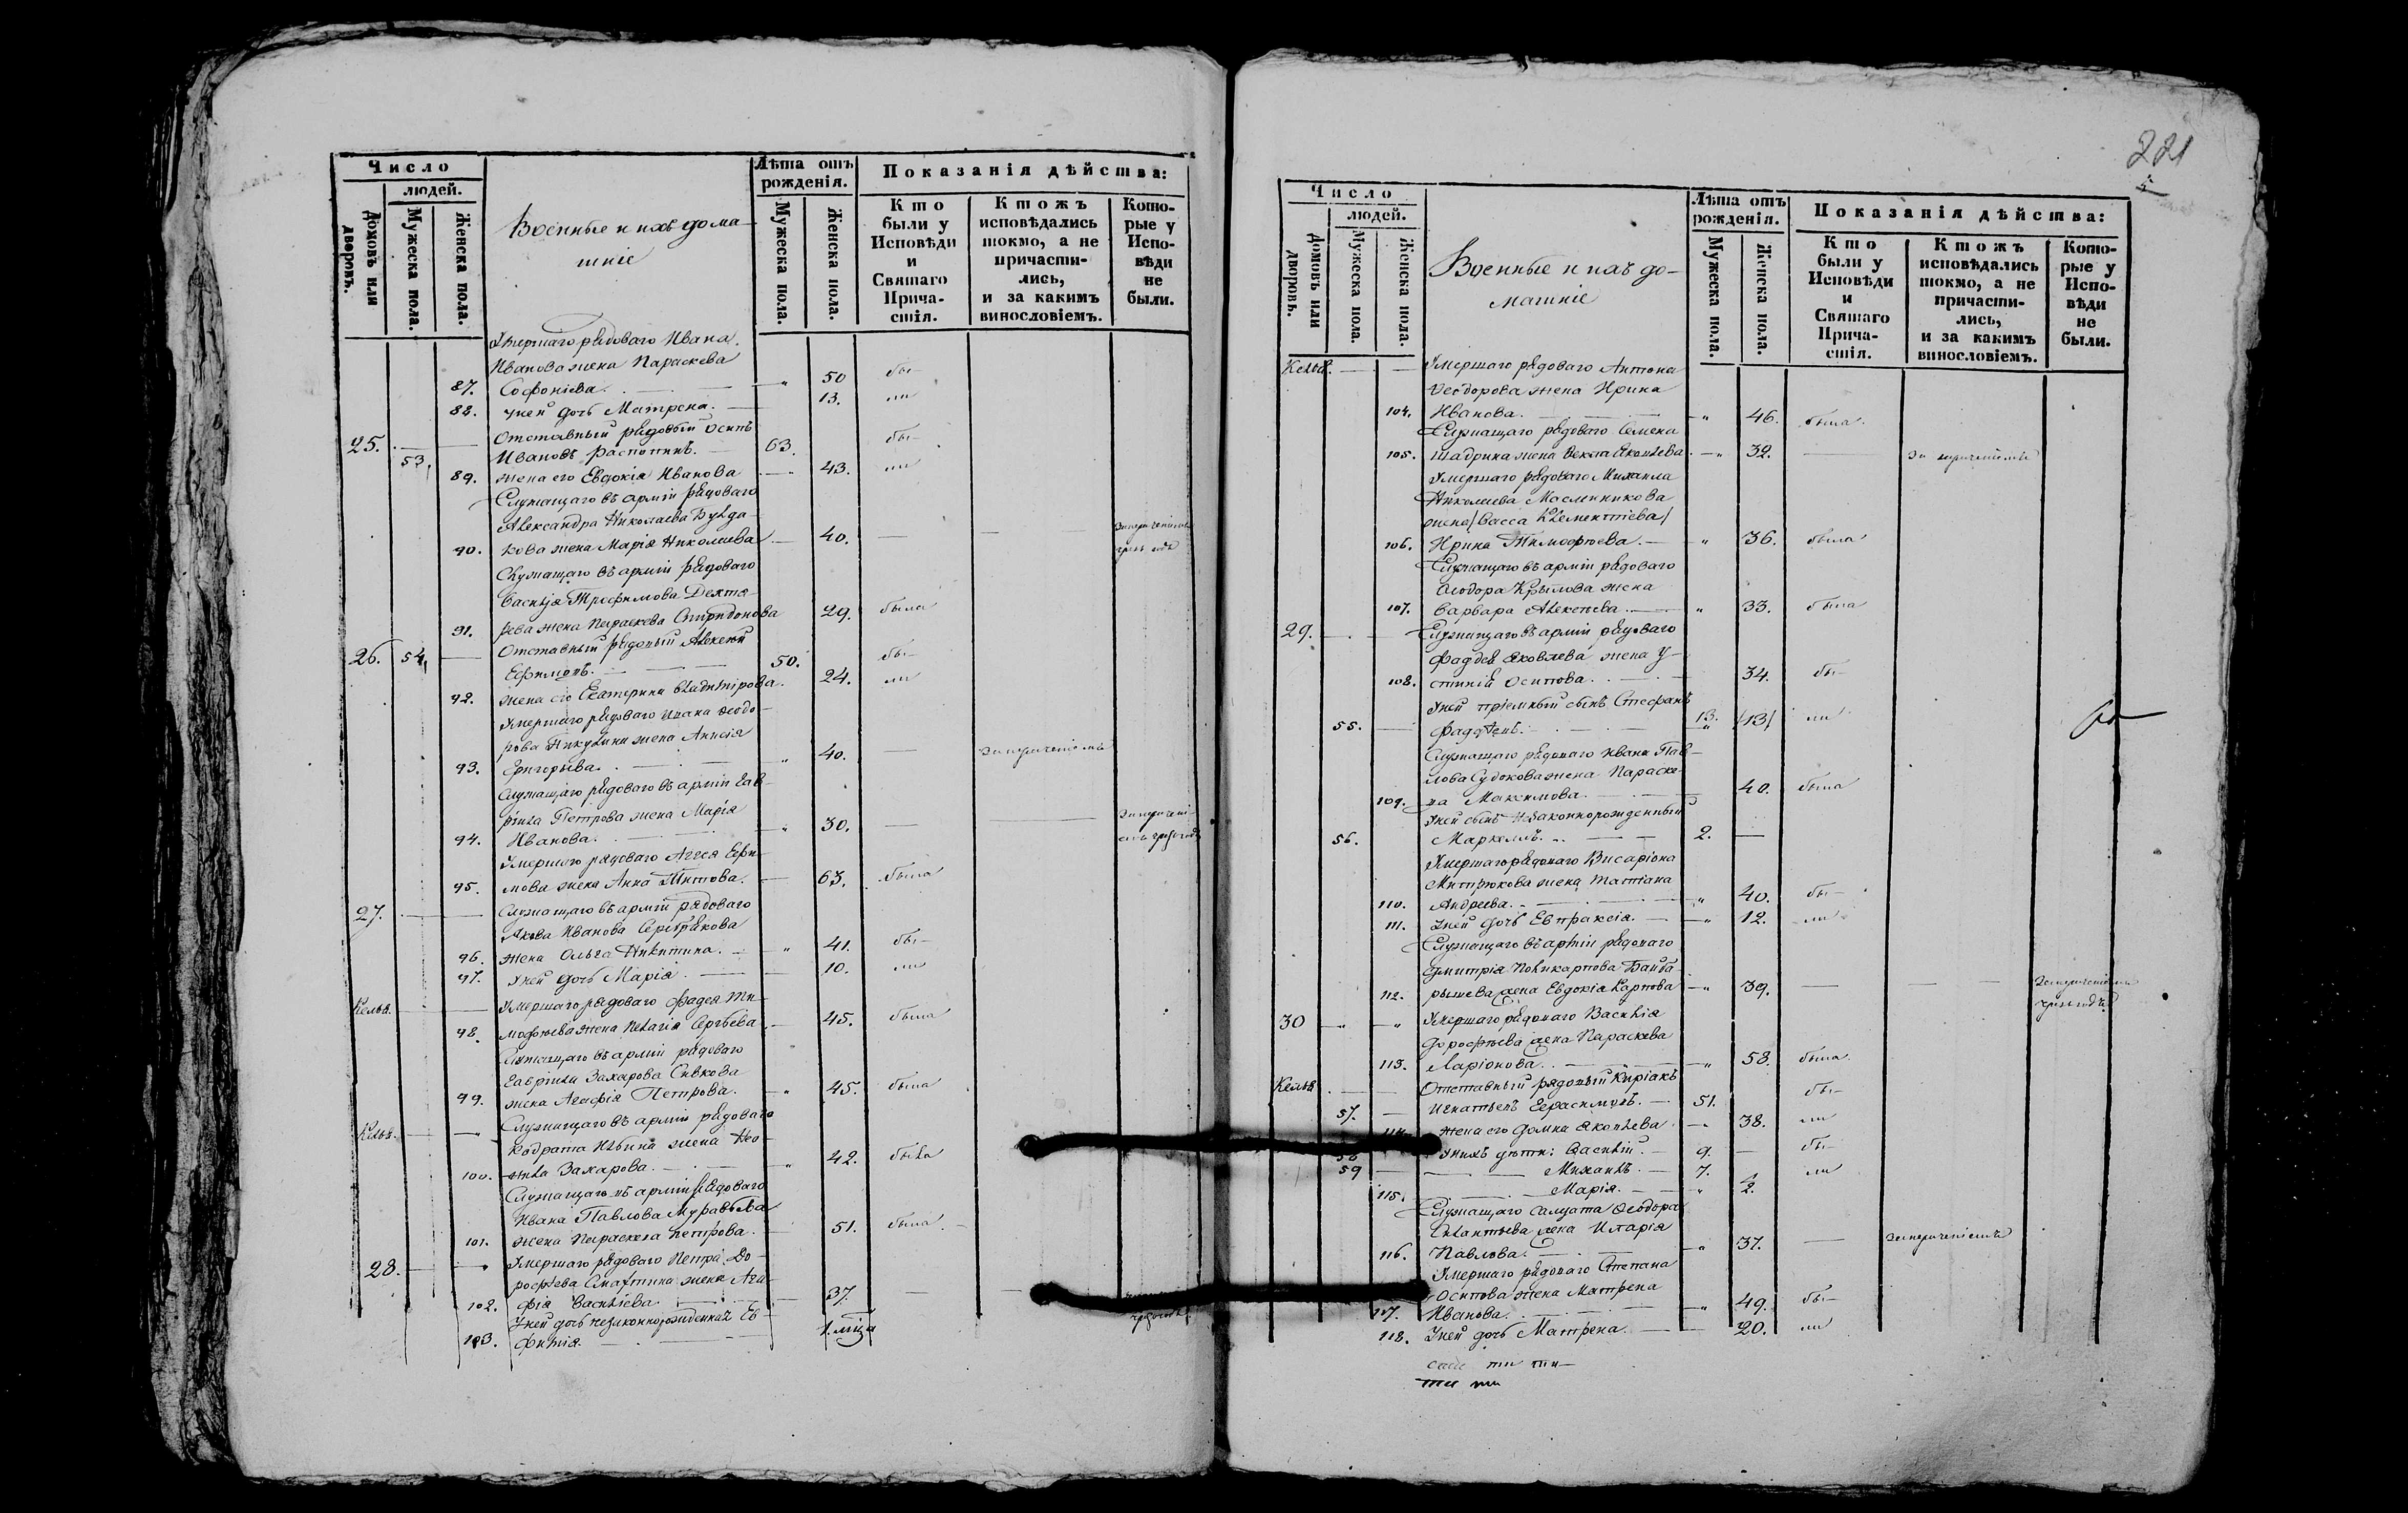 Число
людей.
Домовъ или дворовъ.
Мужеска пола.
Женска пола.
Военные и ихъ дома-
шніе
Лѣта отъ рожденія.
Мужеска пола.
Женска пола.
Показанія дѣйства:
Кто были у Исповѣди и Святаго Прича-стія.
Ктожъ исповѣдались токмо, а не причасти-лись, и за какимъ винословіемъ.
Кото-рые у Испо-вѣди не были.
Умершаго рядоваго Ивана
Иванова жена Параскева
87. Софоніева. 50 бы-
88. Уней дочь Матрена. 13. ли
25. Отставный рядовый Осипъ
53. Ивановъ Распопинъ. 63. бы-
89. жена его Евдокія Иванова 43. ли
Служащаго въ арміи рядоваго
Александра Николаева Булда-
90. кова жена Марія Николаева 40.
Служащаго въ арміи рядоваго
Василья Трофимова Дехтя-
91. рева жена Параскева Спиридонова 29. была
26. 54. Отставный рядовый Алексѣй
Ефимовъ. 50. бы-
92. жена его Екатерина Владимірова. 24. ли
Умершаго рядоваго Ивана Ѳеодо-
рова Никулина жена Анисія
93. Григорьева. 40. за нераченіемъ
Служащаго рядоваго въ арміи Гав-
ріила Петрова жена Марія
94. Иванова. 30.
Умершаго рядоваго Аггея Ефи-
95. мова жена Анна Титова. 63. была
27. Служащаго въ арміи рядоваго
Якова Иванова Серебрякова
96. жена Ольга Никитина. 41. бы-
97. Уней дочь Марія. 10. ли
Келья. Умершаго рядоваго Фадея Ти-
98. мофѣева жена Пелагія Сергѣева 45. была
Служащаго въ арміи рядоваго
Гавріила Захарова Сивкова
99. жена Агафія Петрова. 45. была
Келья. Служащаго въ арміи рядоваго
Кодрата Ильина жена Нео-
100. нила Захарова. 42. была
Служащаго въ арміи рядоваго
Ивана Павлова Муравьева
101. жена Параскева Петрова. 51. была.
28. Умершаго рядоваго Петра До-
рофѣева Смахтина жена Ага-
102. фія Василіева 37.
Уней дочь незаконнорожденная Ев-
103. фимія.
221
Число
людей.
Домовъ или дворовъ.
Мужеска пола.
Женска пола.
Военные и ихъ до-
машніе
Лѣта отъ рожденія.
Мужеска пола.
Женска пола.
Показанія дѣйства:
Кто были у Исповѣди и Святаго Прича-стія.
Ктожъ исповѣдались токмо, а не причасти-лись, и за какимъ винословіемъ.
Кото-рые у Испо-вѣди не были.
Келья. Умершаго рядоваго Антона
Ѳеодорова жена Ирина
104. Иванова. 46. была.
Служащаго рядоваго Семена
105. Шадрина жена Ѳекла Яковлева 32. за нераченіемъ
Умершаго рядоваго Михаила
Николаева Масленникова
жена/Васса Климентіева/
106. Ирина Тимофѣева. 36. была
Служащаго въ арміи рядоваго
Ѳеодора Крылова жена
107. Варвара Алексѣева. 33. была
29. Служащаго въ арміи рядоваго
Фаддея Яковлева жена У-
108. стинія Осипова. 34. бы-
Уней пріемный сынъ Стефанъ
55. Фадѣевъ. 13. /13/ ли
Служащаго рядоваго Ивана Пав-
лова Судокова жена Параске-
109. ва Максимова. 40. была
Уней сынъ незаконнорожденный
56. Маркеллъ. 2.
Умершаго рядоваго Висаріона
Митрюкова жена Татіана
110. Андреева. 40. бы-
111. Уней дочь Евпраксія. 12. ли
Служащаго въ арміи рядоваго
Димитрія Поликарпова Байба-
112. рышева жена Евдокія Карпова 39.
30 Умершаго рядоваго Василія
Дорофѣева жена Параскева
113. Ларіонова. 58. была.
Келья Отставный рядовый Киріакъ
57. Игнатьевъ Герасимовъ. 51. бы-
114. жена его Домна Яковлева 38. ли
58 Унихъ дѣти: Василій. 9. бы-
59 Михаилъ. 7. ли
115. Марія. 2.
Служащаго солдата Ѳеодора
Силантьева жена Иларія
116. Павлова. 37. за нераченіемъ
Умершаго рядоваго Степана
Осипова жена Матрена
117. Иванова. 49. бы-
118. Уней дочь Матрена. 20. ли